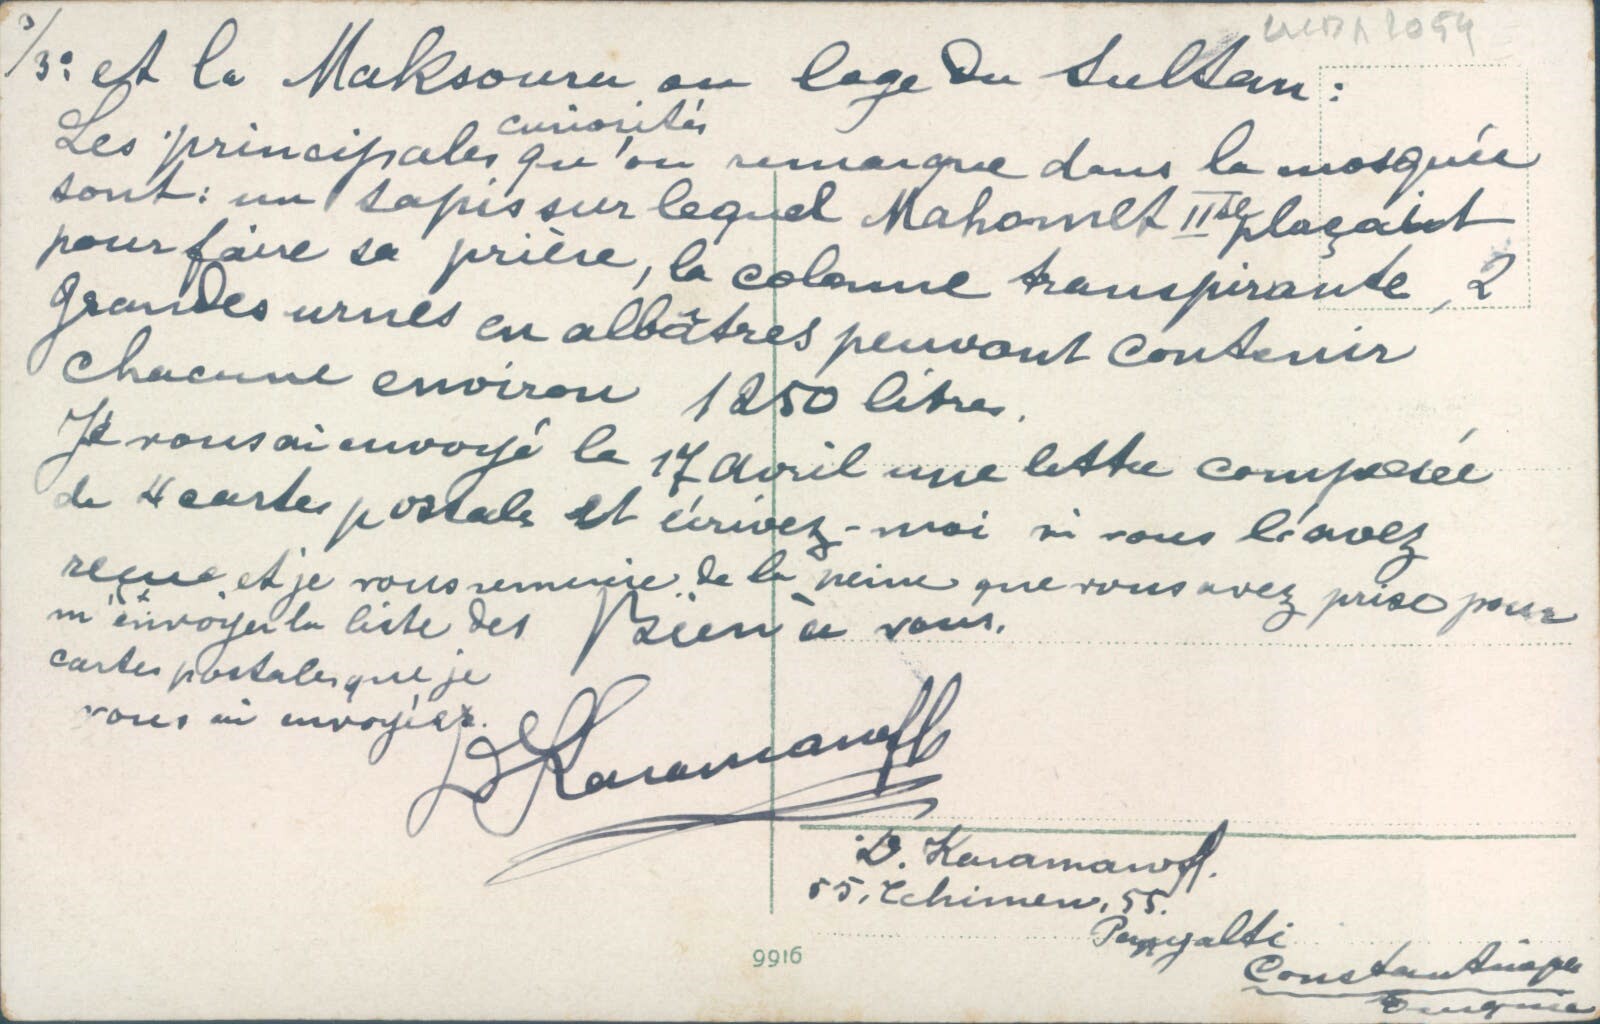 3/3º et la Maksoura ou loge du Sultan :
Les principales curiosités qu'on remarque dans la mosquée
sont : un tapis sur lequel Mahomet II se plaçait
pour faire sa prière, la colonne transpirante, 2
grandes urnes en albâtres peuvant contenir
chacune environ 1250 litres.
Je vous ai envoyé le 17 avril une lettre composée
de 4 cartes postales et écrivez-moi si vous l'avez
reçue et je vous remercie de la peine que vous avez prise pour
m'envoyer la liste des
cartes postales que je
vous ai envoyées.
Bien à vous.
DKaramanoff
D. Karamanoff.
55, Tchimen, 55.
Pangalti
Constantinople
Turquie
9916